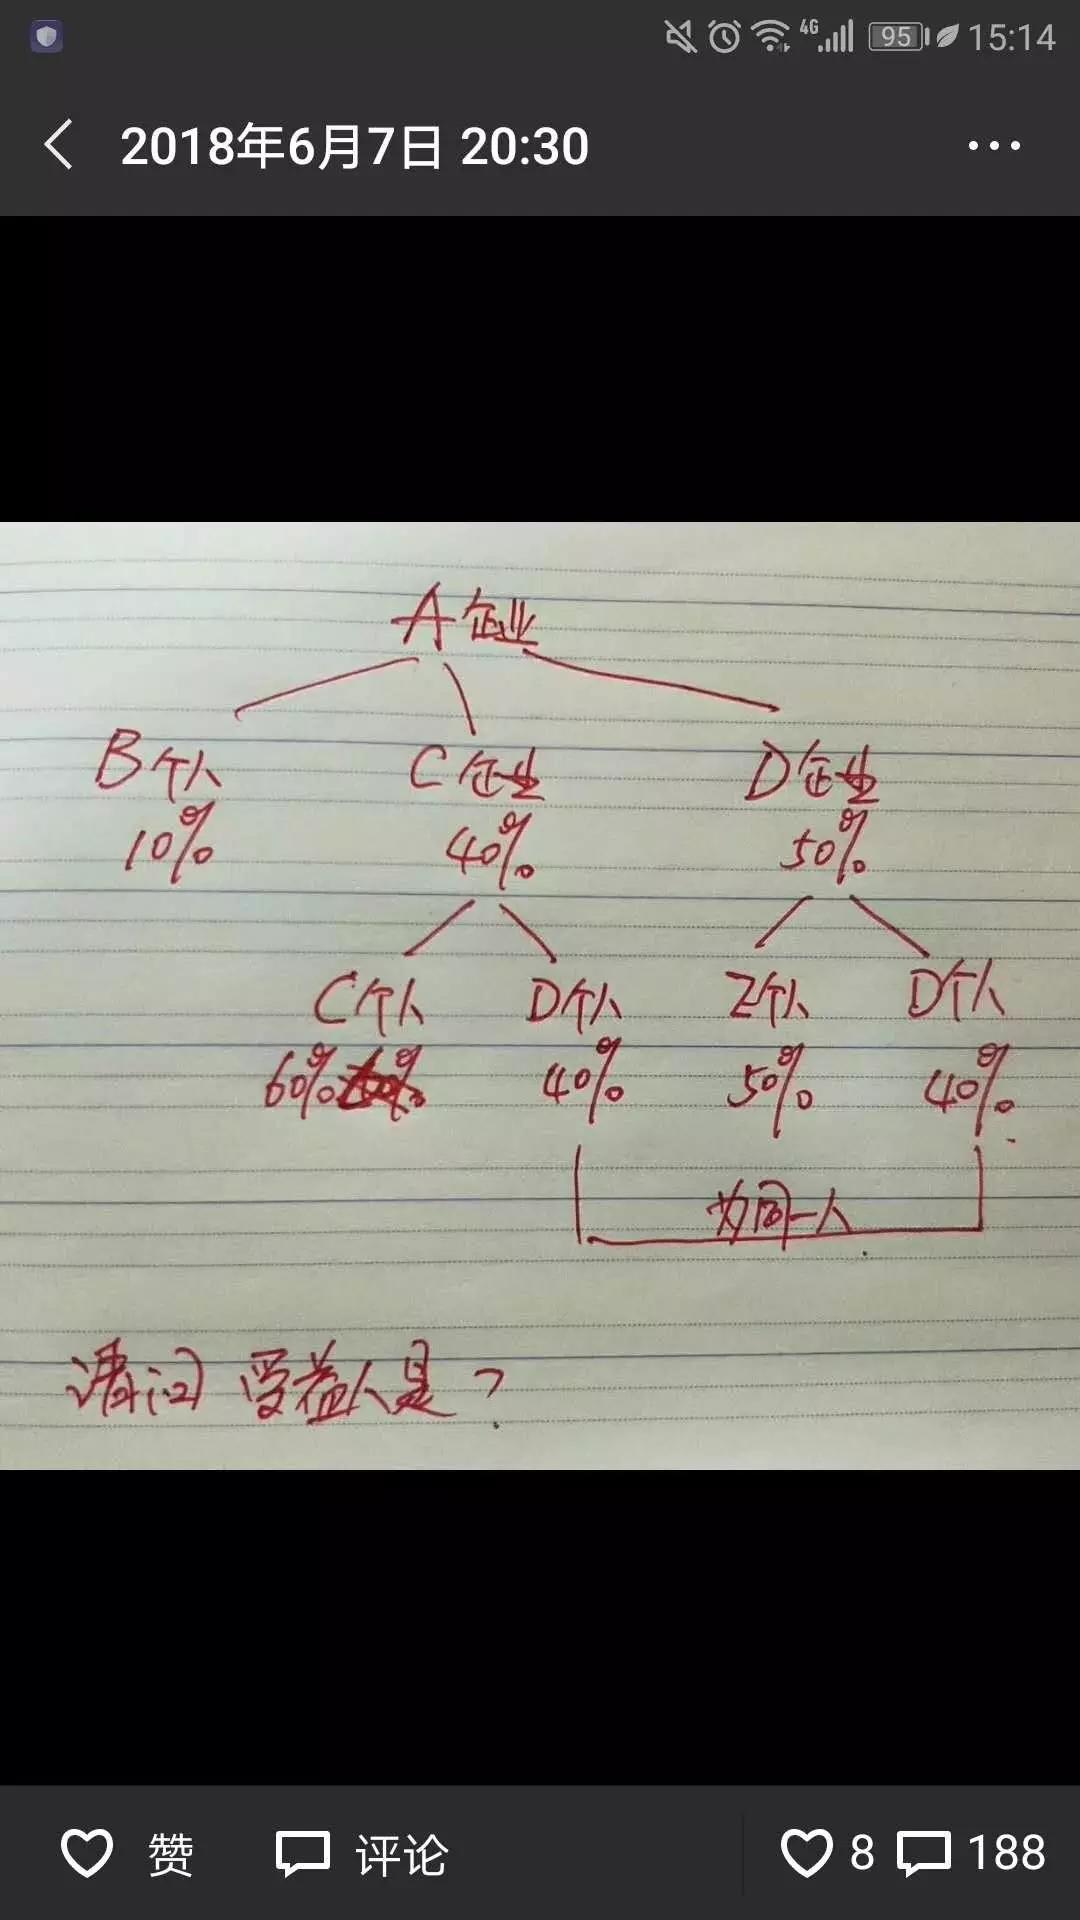 4G 95 15:14
2018年6月7日 20:30
A企业
B个人 C企业 D企业
10% 40% 50%
C个人 D个人 Z个人 D个人
60% 40% 50% 40%
为同一人
请问 受益人是?
赞 评论 8 188